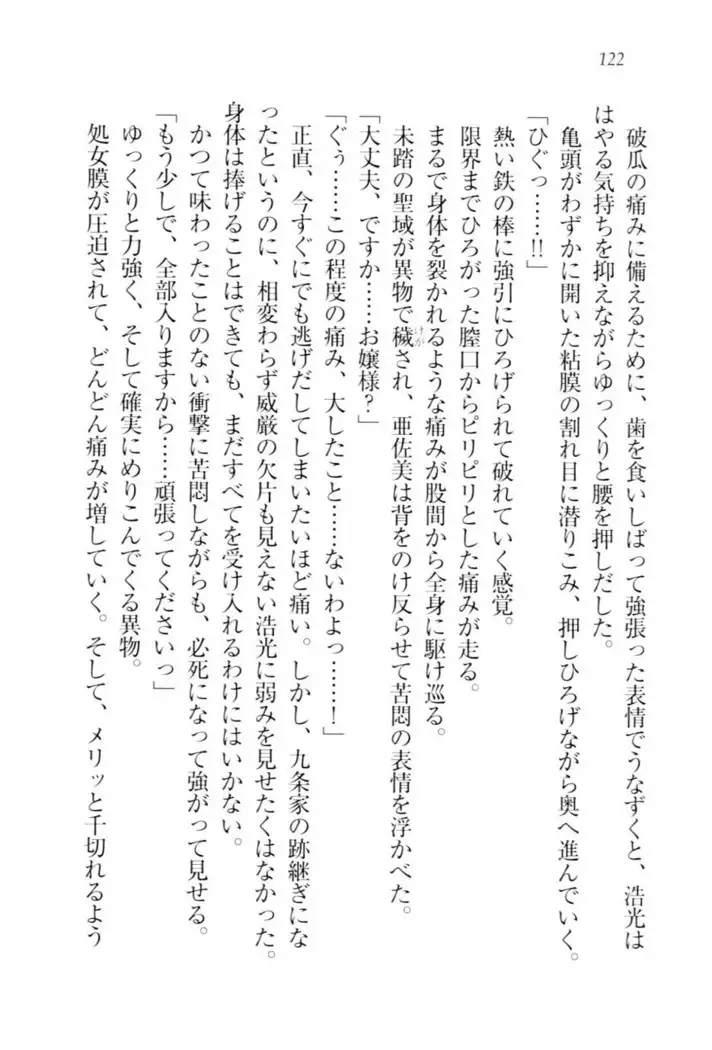 122
破瓜の痛みに備えるために、歯を食いしばって強張った表情でうなずくと、浩光は
はやる気持ちを抑えながらゆっくりと腰を押しだした。
亀頭がわずかに開いた粘膜の割れ目に潜りこみ、押しひろげながら奥へ進んでいく。
「ひぐっ……!!」
熱い鉄の棒に強引にひろげられて破れていく感覚。
限界までひろがった膣口からピリピリとした痛みが走る。
まるで身体を裂かれるような痛みが股間から全身に駆け巡る。
未踏の聖域が異物で穢され、亜佐美は背をのけ反らせて苦悶の表情を浮かべた。
「大丈夫、ですか……お嬢様?」
「ぐぅ……この程度の痛み、大したこと……ないわよっ……!」
正直、今すぐにでも逃げだしてしまいたいほど痛い。しかし、九条家の跡継ぎにな
ったというのに、相変わらず威厳の欠片も見えない浩光に弱みを見せたくはなかった。
身体は捧げることはできても、まだすべてを受け入れるわけにはいかない。
かつて味わったことのない衝撃に苦悶しながらも、必死になって強がって見せる。
「もう少しで、全部入りますから……頑張ってくださいっ」
ゆっくりと力強く、そして確実にめりこんでくる異物。
処女膜が圧迫されて、どんどん痛みが増していく。そして、メリッと千切れるよう